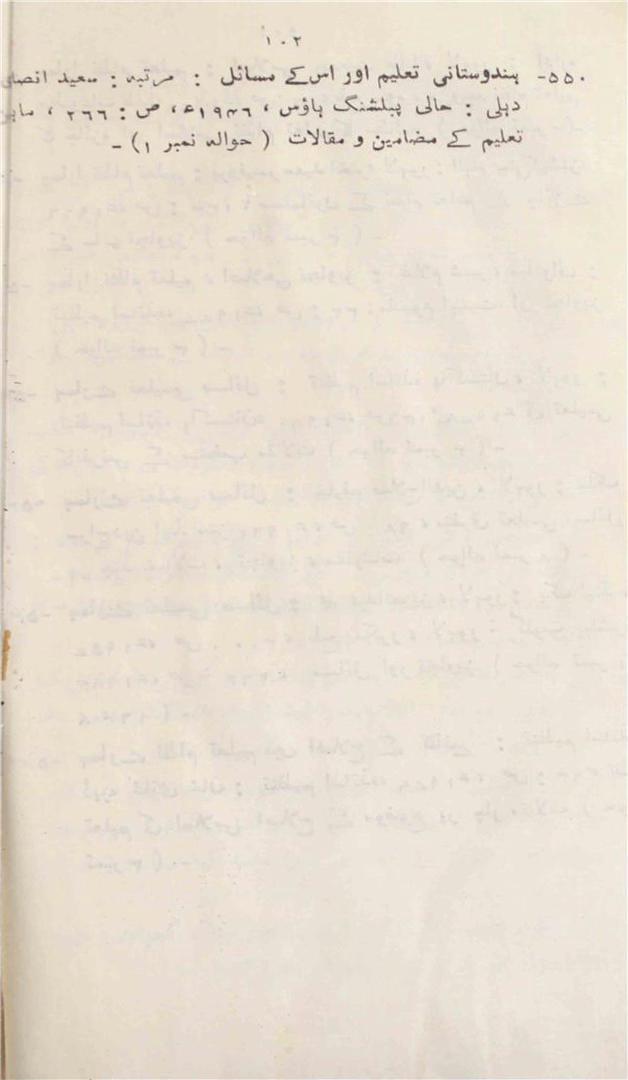 ۱۰۲
۵۵۰- ہندوستانی تعلیم اور اس کے مسائل : مرتبہ : سعید انصاری
دہلی : حالی پبلشنگ ہاؤس ، ۱۹۴۶ء، ص : ۲۶۶ ،
تعلیم کے مضامین و مقالات ( حوالہ نمبر ۱) -